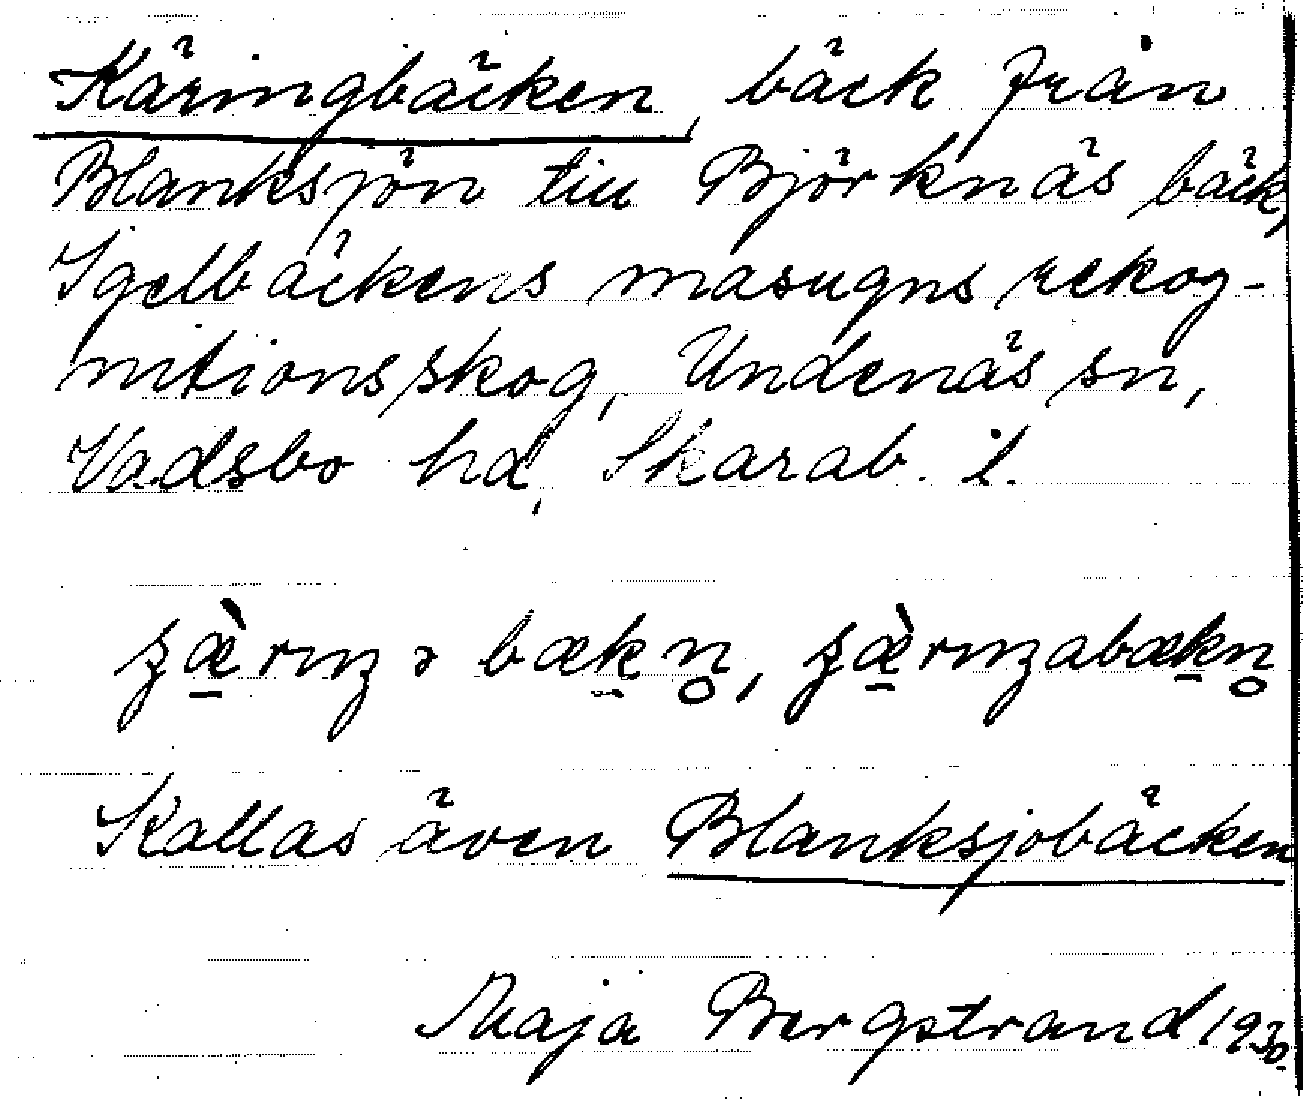 Käringbäcken, bäck från
Blanksjön till Björknäs bäck,
Igelbäckens masugns rekog-
nitionsskog, Undenäs sn,
Vadsbo hd, Skarab. l.
Kallas även Blanksjöbäcken
Maja Bergstrand 1930.